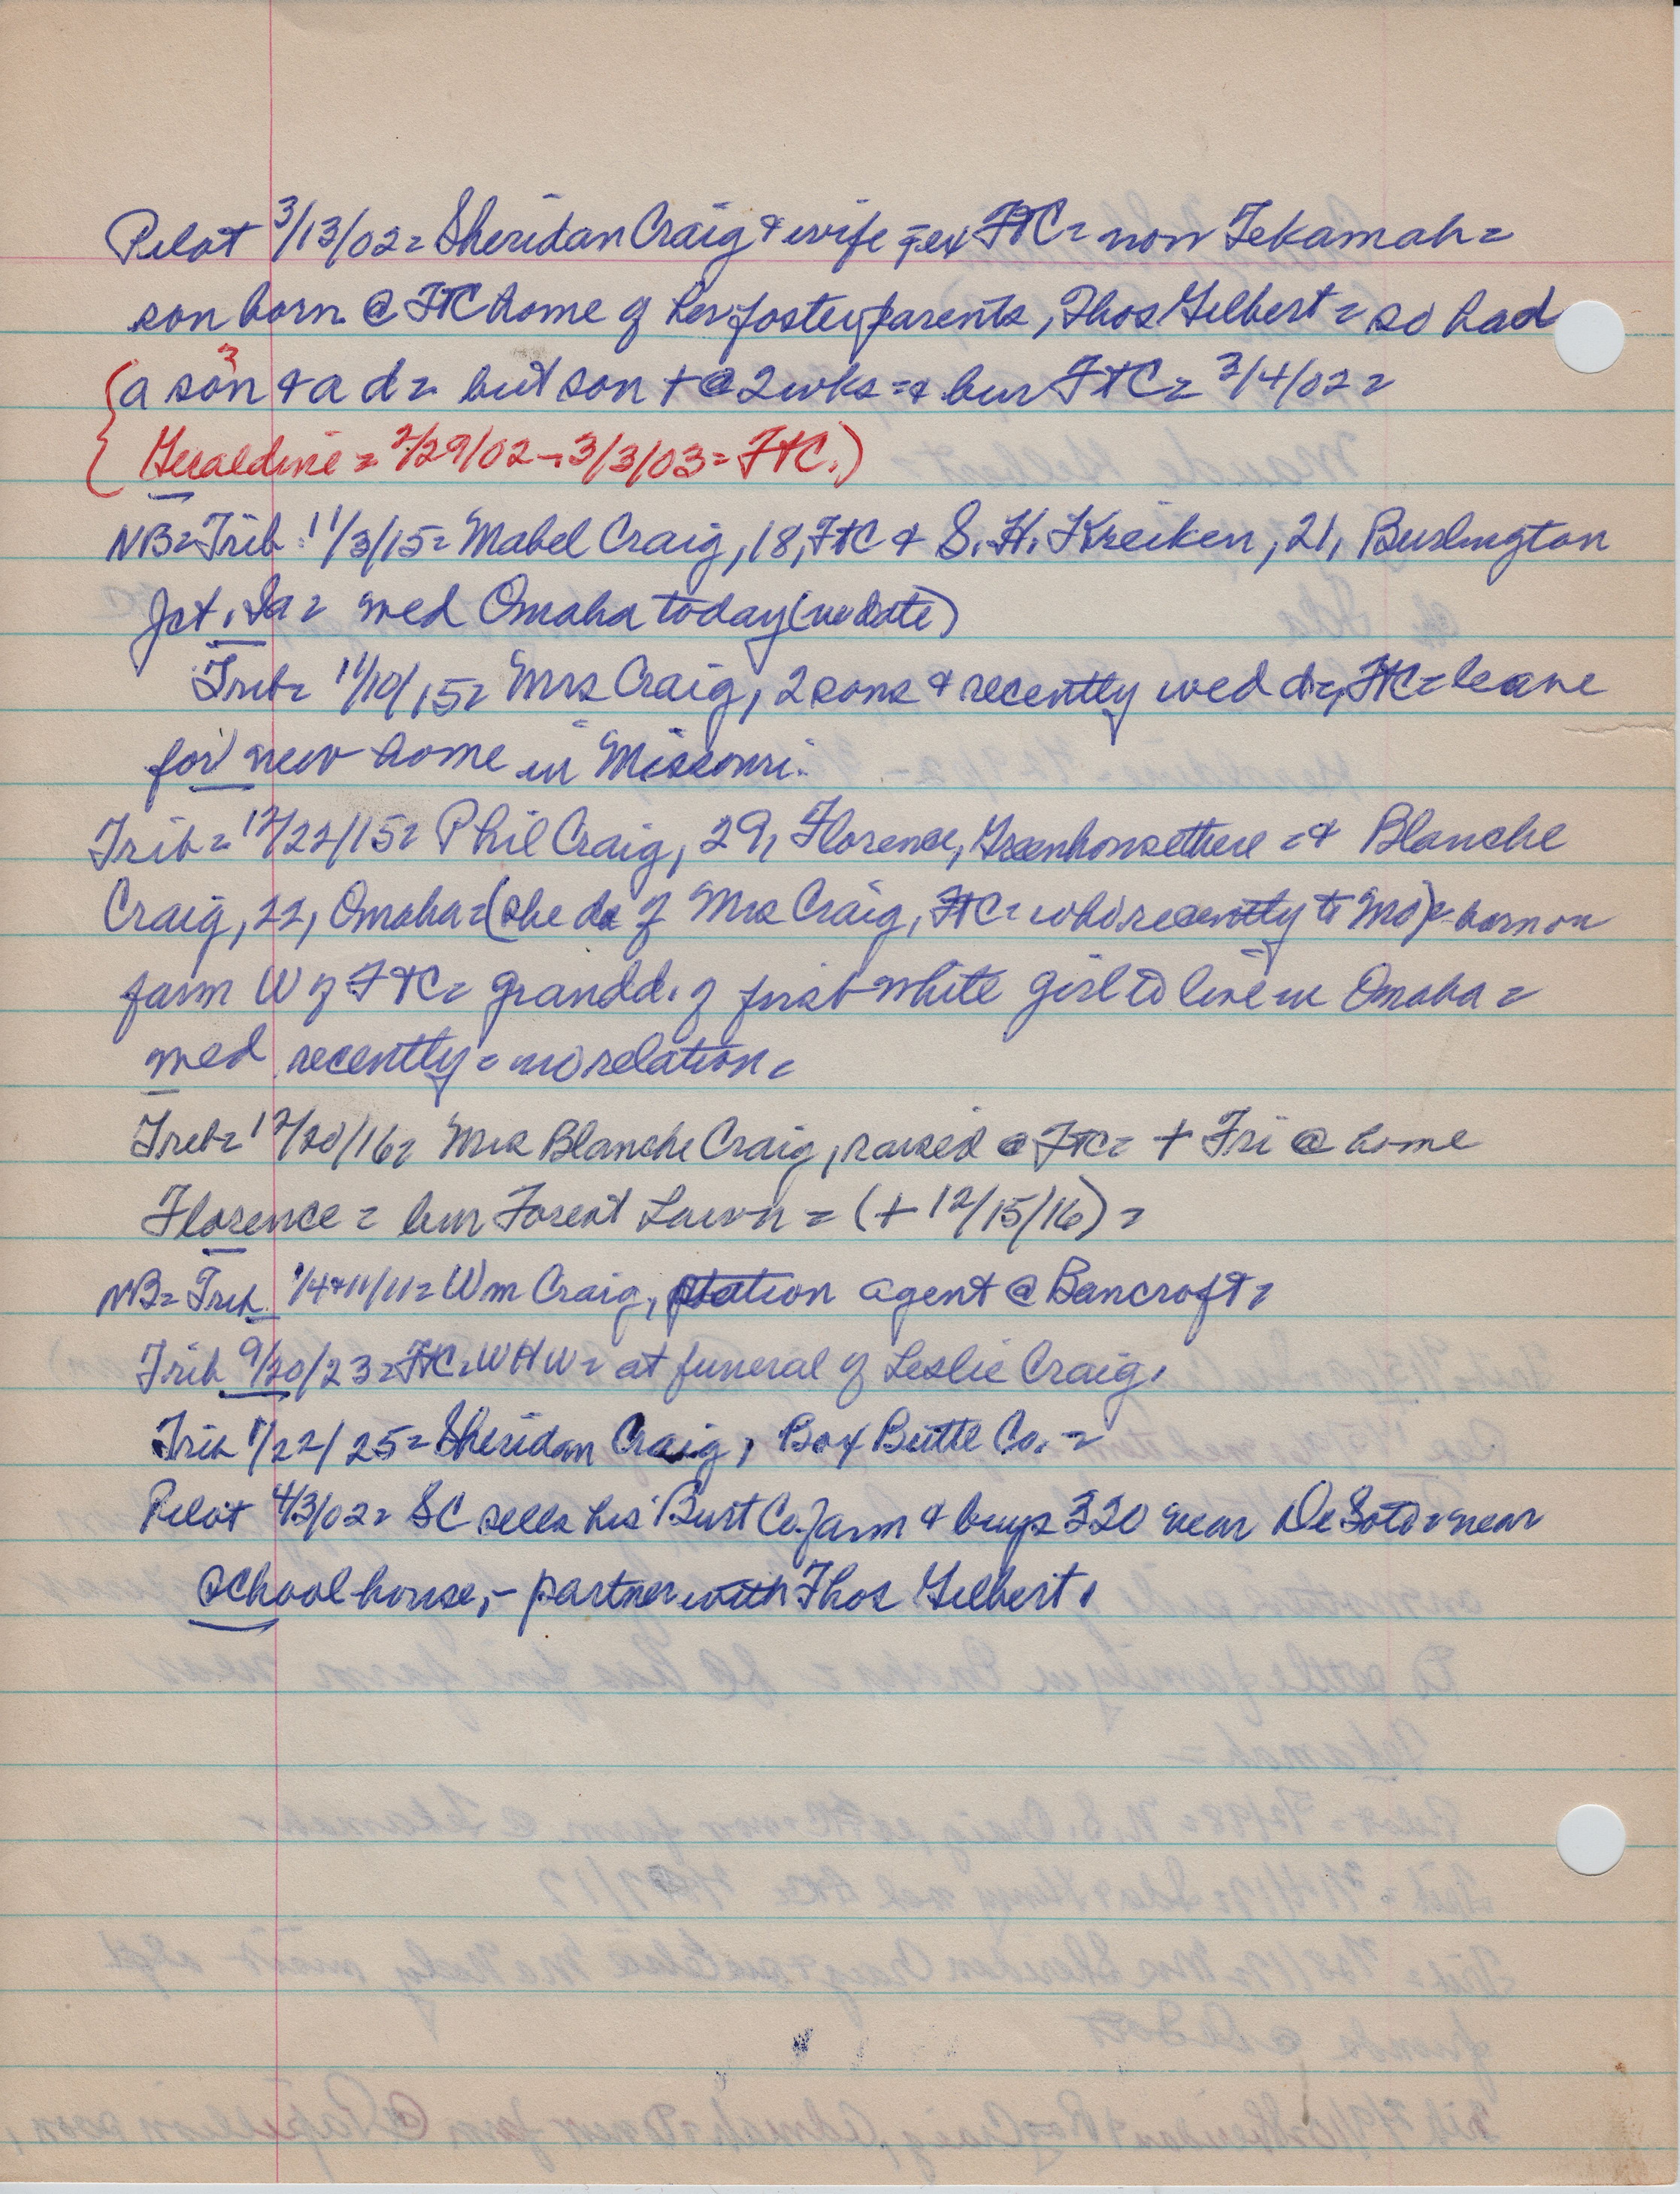 Pilot 3/13/02= Sheridan Craig & wife = ex FtC= now Tekamah=
son born @ FtC home of her foster parents, Thos Gilbert = so had
(a son 3 & a d= but son + @ 2 wks = & bur FtC= 3/4/02=
Geraldine = 2/29/02 - 3/3/03= FtC.)
NB= Trib. 11/3/15= Mabel Craig, 18, FtC & S. H. Kreiken, 21, Burlington
Jct, Ia = wed Omaha today (no date)
Trib= 11/10/15= Mrs Craig, 2 sons & recently wed d=, FtC= leave
for new home in Missouri.
Trib= 12/22/15= Phil Craig, 29, Florence, Greenhouse there = & Blanche
Craig, 22, Omaha= (she da of Mrs Craig, FtC= who recently to Mo)= born on
farm W of FtC= grandd. of first white girl to live in Omaha =
wed recently = no relation=
Trib= 12/20/16= Mrs Blanche Craig, raised @ FtC= + Fri @ home
Florence = bur Forest Lawn = (+ 12/15/16) =
NB= Trib. 1/4 & 11/11= Wm Craig, station agent @ Bancroft=
Trib 9/20/23= FtC= WHW= at funeral of Leslie Craig.
Trib 1/22/25= Sheridan Craig, Box Butte Co. =
Pilot 4/3/02= SC sells his Burt Co. farm & buys 320 near DeSoto = near
school house, - partner with Thos Gilbert.